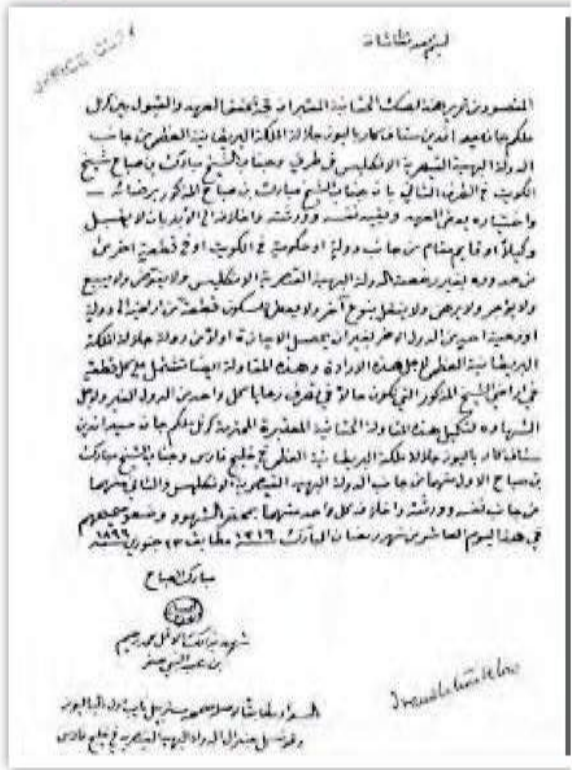 المقصود من تحرير هذه الصك الحقانية المعتبرات تحقق العهد والقبول بين كرنل
ملكم جان ميد اندين ستاف كار باليوز جلالة الملكة البريطانية العظمى من جانب
الدولة البهية القيصرية الانكليس في طرف وجناب الشيخ مبارك بن صباح شيخ
الكويت في الطرف الثاني بان جناب الشيخ مبارك بن صباح المذكور برضائه
واختياره يعطي العهد ويقيد نفسه وورثته واخلافه الى الأبد بان لا يقبل
وكيلاً او قايم مقام من جانب دولة او حكومة في الكويت او في قطعة اخرى
من حدوده بغير رخصة الدولة البهية القيصرية الانكليس ولا يفوض ولا يبيع
ولا يؤجر ولا يرهن ولا ينقل بنوع آخر ولا يعطي للسكون قطعة من اراضيه الى دولة
او رعية احد من الدول الاخر بغير ان يحصل الاجازة اولاً من دولة جلالة الملكة
البريطانية العظمى لاجل هذه الارادة وهذه المقاولة ايضا تشتمل على كل قطعة
في اراضي الشيخ المذكور التي تكون حالاً في تصرف رعايا كل واحد من الدول الغير ولاجل
الشهاده لتكميل هذه المقاولة الحقانية المعتبرة المحترمة كرنل ملكم جان ميد اندين
ستاف كار باليوز جلالة ملكة البريطانية العظمى في خليج فارس وجناب الشيخ مبارك
بن صباح الاول منهما من جانب الدولة البهية القيصرية الانكليس والثاني منهما
من جانب نفسه وورثته واخلافه كل واحد منهما بمحضر الشهود وضعو صحيحهم
في هذا اليوم العاشر من شهر رمضان المبارك ١٣١٦ مطابق ٢٣ جنوري ١٨٩٩
مبارك الصباح
شهد بذالك الاقل محمد رحيم
بن عبد النبي صفر